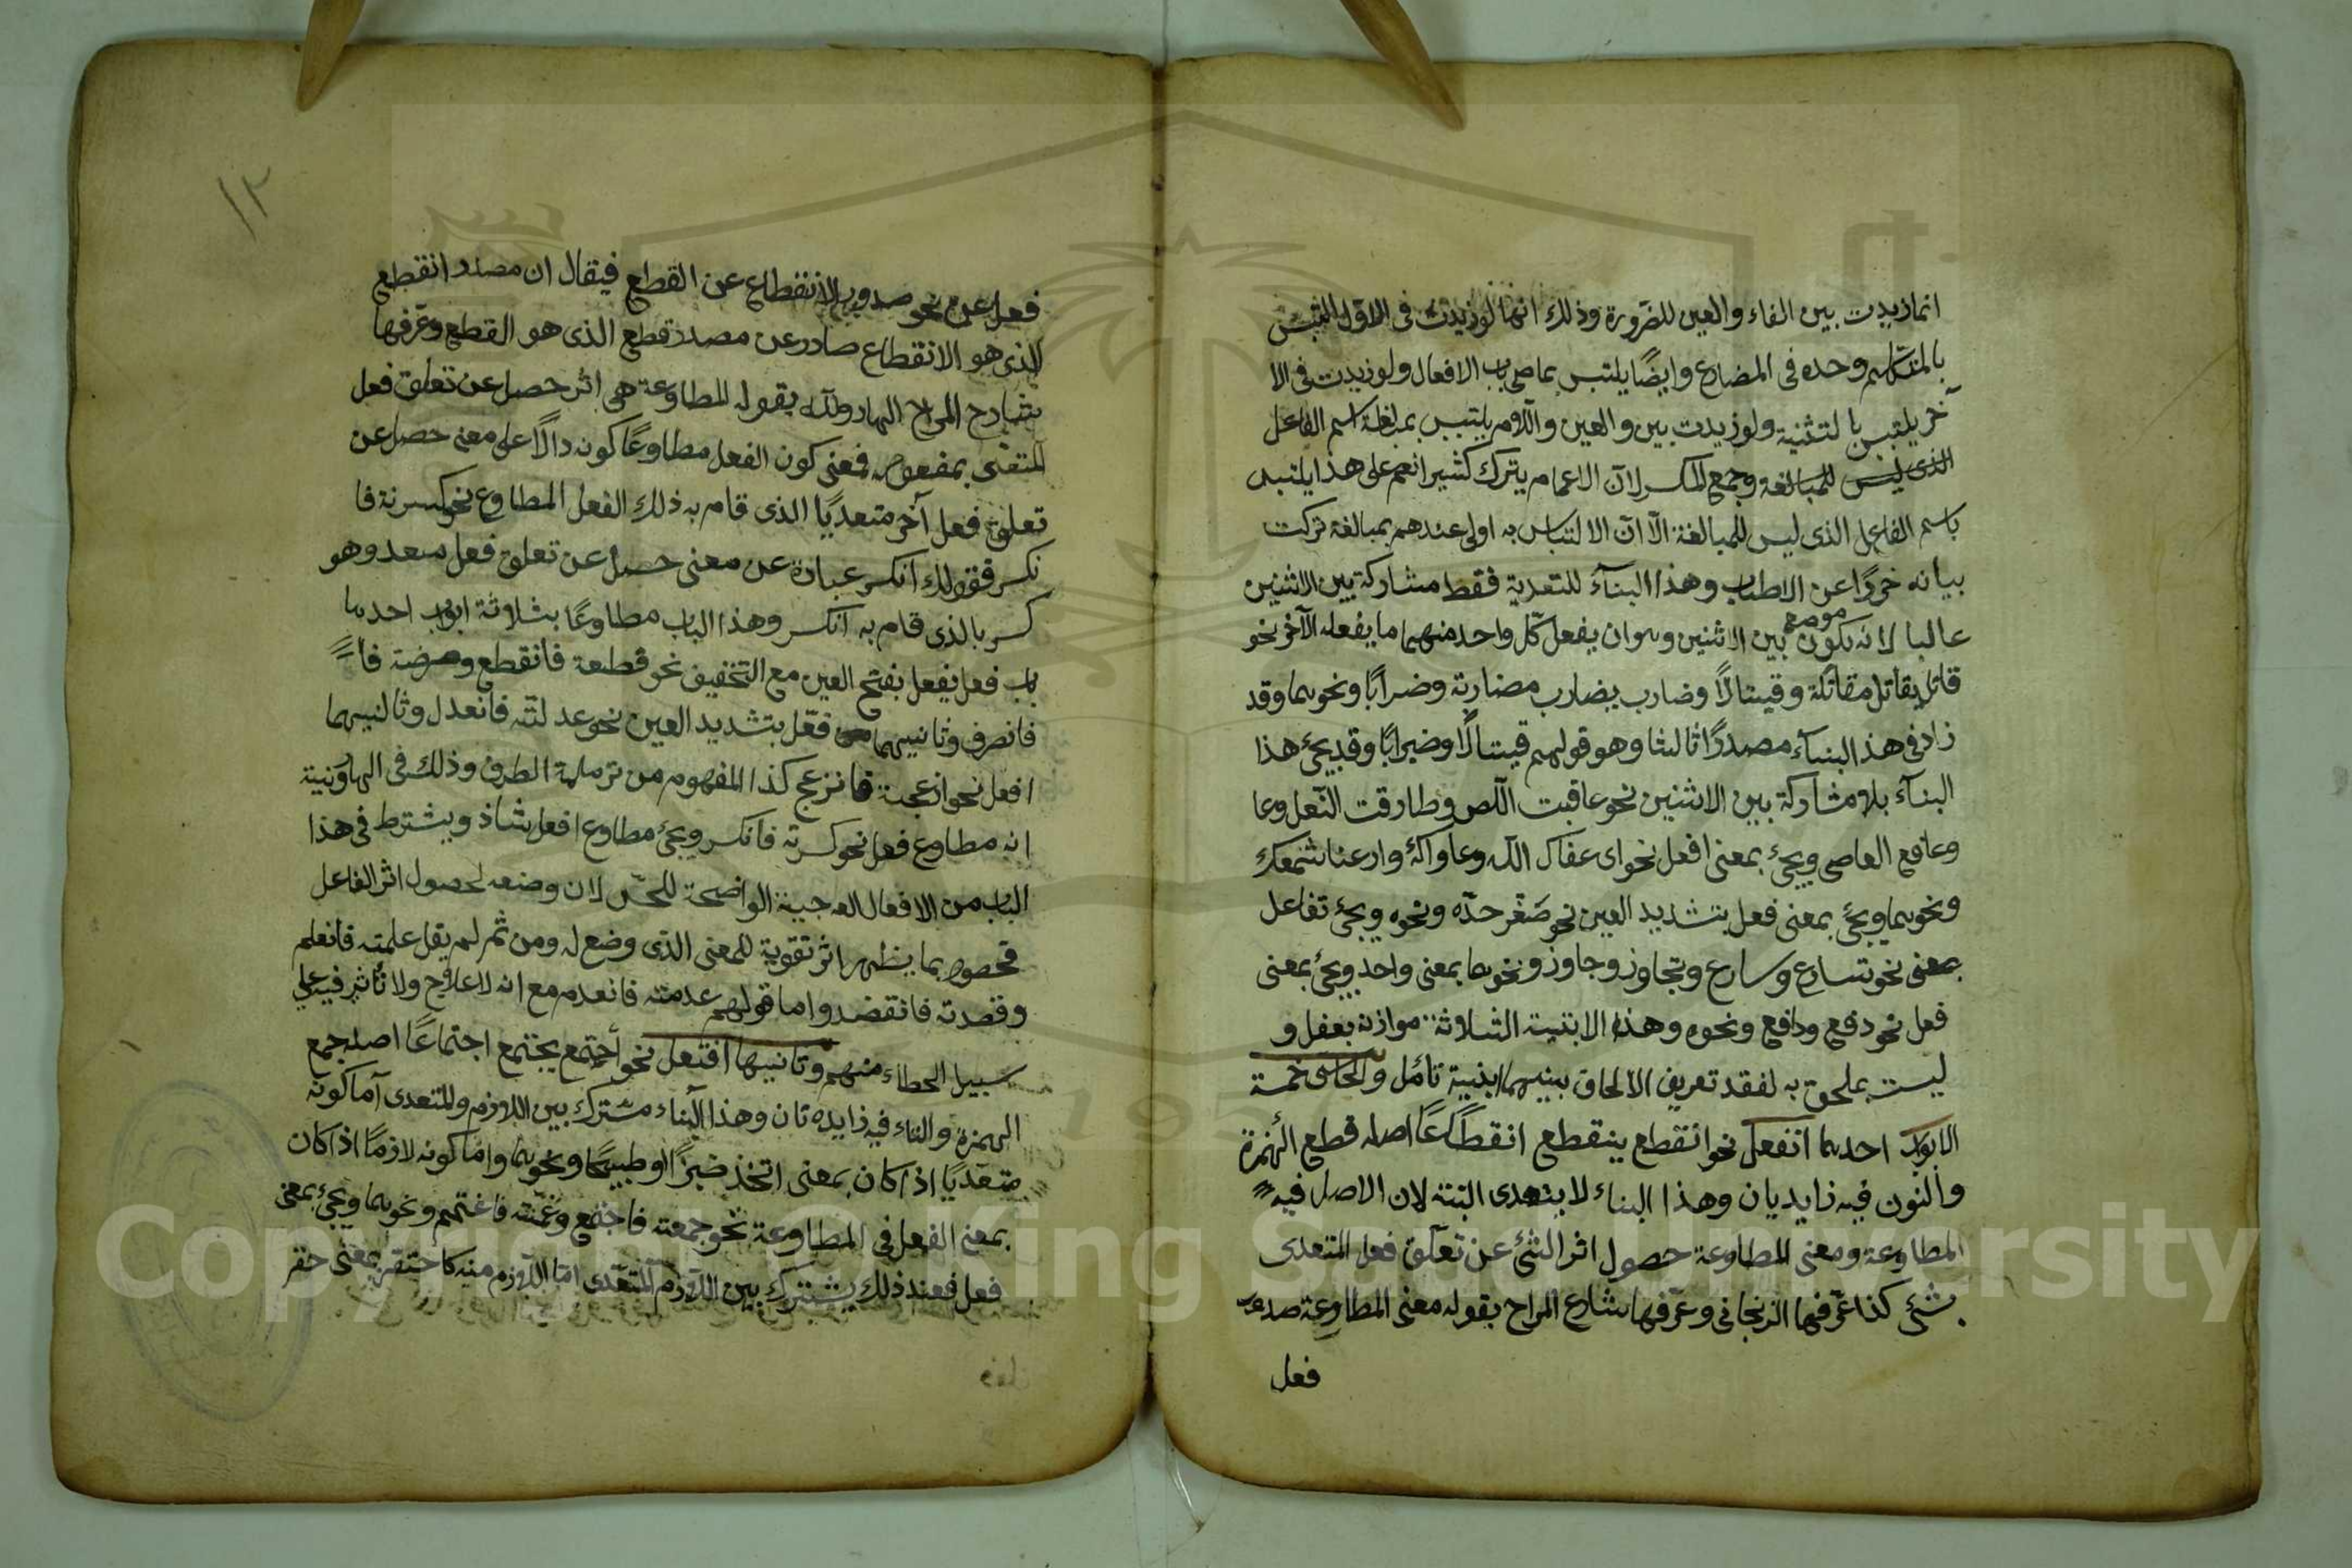 انما زيدت بين الفاء والعين للضرورة وذلك انها لو زيدت في الاول التبس
بالمتكلم وحده في المضارع وايضًا يلتبس بماضي باب الافعال ولو زيدت في الا
خر يلتبس بالتثنية ولو زيدت بين والعين واللام يلتبس بمبالغة اسم الفاعل
الذي ليس للمبالغة وجمع المكسر لان الاعجام يترك كثيرا نعم على هذا يلتبس
باسم الفاعل الذي ليس للمبالغة الّا انّ الالتباس به اولى عندهم بمبالغة تركت
بيانه خررًا عن الاطناب وهذا البنآء للتعدية فقط مشاركة بين الاثنين
غالبا لانه يكون بين الاثنين وهو ان يفعل كلّ واحد منهما ما يفعله الآخر نحو
قاتل يقاتل مقاتلة وقيتالًا وضارب يضارب مضاربة وضرابًا ونحوهما وقد
زاد في هذا البناء مصدرًا ثالثا وهو قولهم قيتالًا وضيرابًا وقد يجئ هذا
البنآء بلا مشاركة بين الاثنين نحو عاقبت اللّص وطارقت النّعل وعا
وعاقع العاصي ويجئ بمعنى افعل نحو اى عفاك اللّه وعافاكَ وارعنا شمعك
ونحوهما ويجئ بمعنى فعل بتشديد العين نحو صَعّر خدّه ونحوه ويجئ تفاعل
بمعنى نحو تسارع وسارع وتجاوز وجاوز ونحوهما بمعنى واحد ويجئ بمعنى
فعل نحو دفع ودافع ونحوه وهذه الابنية الثلاثة موازنة بفعل و
ليست بملحق به لفقد تعريف الالحاق بينهما ابنية تامل والخماسي خمسة
الابواب احدهما انفعل نحو انقطع ينقطع انقطاعًا اصله قطع الهمزة
والنون فيه زايديان وهذا البناء لا يتعدى البتة لان الاصل فيه
المطاوعة ومعنى المطاوعة حصول اثر الشئ عن تعلّق فعل المتعدى
بشئ كذا عرّفها الزنجاني وعرّفها شارع المراح بقوله معنى المطاوعة صدور
فعل
١٢
فعل عن نحو صدور الانقطاع عن القطع فيقال ان مصدر انقطع
الذى هو الانقطاع صادر عن مصدر قطع الذى هو القطع وعرّفها
شارح المراح بقوله المطاوعة هي اثر حصل عن تعلق فعل
المتعدّى بمفعوله فمعنى كون الفعل مطاوعًا كونه دالًا على معنى حصل عن
تعلق فعل آخر متعديًا الذى قام به ذلك الفعل المطاوع نحو كسرته فا
نكسر فقولك انكسر عبارة عن معنى حصل عن تعلق فعل متعد وهو
كسر بالذى قام به انكسر وهذا الباب مطاوعًا بثلاثة ابواب احدها
باب فعل يفعل بفتح العين مع التخفيف نحو قطعة فانقطع وصرفته فا
فانصرف وثانيهما فعّل بتشديد العين نحو عدلته فانعدل وثالثيهما
افعل نحو ازعجته فانزعج كذا المفهوم من ترملمة الطرف وذلك في الهارونية
انه مطاوع فعل نحو كسرته فانكسر ويجئ مطاوع افعل شاذ ويشترط في هذا
الباب من الافعال العلاجية الواضحة للحسّ لان وضعه لحصول اثر الفاعل
فخصوه بما يظهر اثر تقوية للمعنى الذى وضع له ومن ثم لم يقل علمته فانعلم
وقصدته فانقصد واما قولهم عدمته فانعدم مع انه لا علاج ولا تأثير فيه على
سبيل الخطاء منهم وثانيها افتعل نحو أجتمع يجتمع اجتماعًا اصله جمع
الهمزة والتاء فيه زايده تان وهذا البناء مشترك بين اللازم والمتعدى آما كونه
متعدّيًا اذا كان بمعنى اتخذ خبزًا وطبيخًا ونحوهما وامّا كونه لازمًا اذا كان
بمعنى الفعل في المطاوعة نحو جمعته فاجتمع وغمّته فاغتمم ونحوهما ويجئ بمعنى
فعل فعند ذلك يشترك بين اللازم المتعدى امّا اللّازم منه كاحتقر بمعنى حقر
Copyright © King Saud University
195